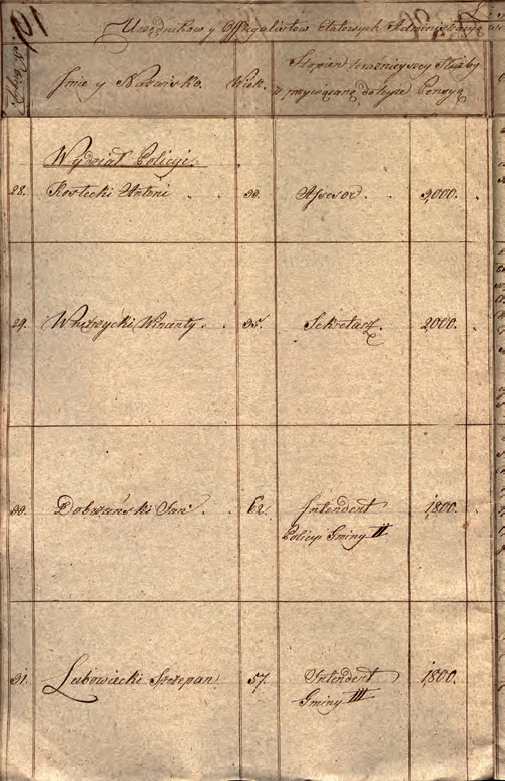 Urzędników y Officyalistów Etatowych Administracyi
Imie y Nazwisko.
Wiek.
Stopień teraznieyszey Służby
z przywiązaną do tegoż Pensyą
Wydział Policyi.
28. Kostecki Antoni 32. Assesor. 3,000.
29. Wincenty. 35. Sekretarz 2,000.
30. Dobrzański Jan 62. Intendent 1,800.
Policyi Gminy II
31. Lubowiecki Szczepan 57. Intendent 1,800.
Gminy III